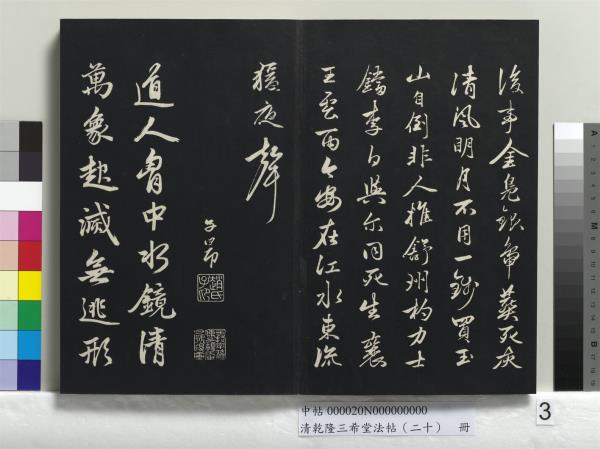 後事金鳧銀鴨葬死灰
清風明月不用一錢買玉
山自倒非人推舒州杓力士
鐺李白與爾同死生襄
王雲雨今安在江水東流
猿夜聲
子昂
趙氏子昂
道人胸中水鏡清
萬象起滅無逃形
中帖 000020N000000000
清乾隆三希堂法帖(二十) 冊
3